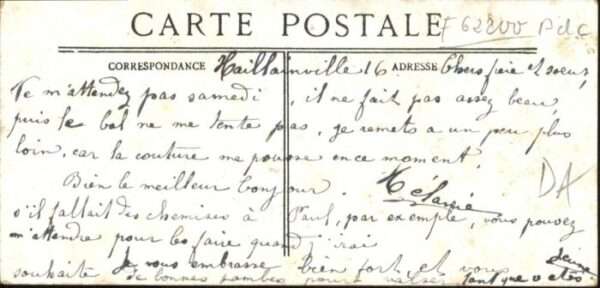 CARTE POSTALE
F 62200 PdC
CORRESPONDANCE
ADRESSE
Haillainville 16 Chers frère et soeur,
Ne m'attendez pas samedi, il ne fait pas assez beau
puis le bal ne me tente pas, je remets a un peu plus
loin, car la couture me pousse en ce moment.
Bien le meilleur bonjour. Mélanie
DA
s'il fallait des chemises à Paul, par exemple, vous pouvez
m'attendre pour les faire quand j'irai
souhaite Je vous embrasse bien fort et vous
de bonnes jambes pour valser tant que